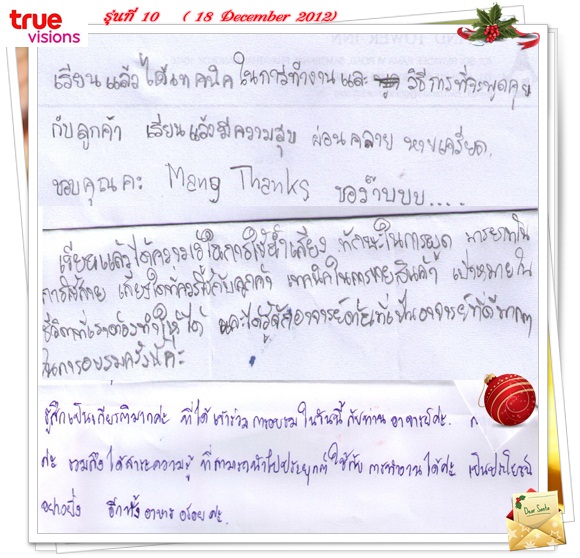 true
visions
รุ่นที่ 10 ( 18 December 2012)
เรียนแล้วได้เทคนิคในการทำงานและ วิธีการที่จะพูดคุย
กับลูกค้า เรียนแล้วมีความสุข ผ่อนคลาย หายเครียด.
ขอบคุณคะ Mang Thanks ของว๊าบบบ....
เรียนแล้วได้ความรู้ในการใช้น้ำเสียง ทักษะในการพูด มารยาทใน
การ เกียร์ใดที่ควรใช้กับลูกค้า เทคนิคในการขายสินค้า เป้าหมายใน
ชีวิตที่เราต้องทำให้ได้ และได้รู้จักอาจารย์ ที่เป็นอาจารย์ที่ดีมากๆ
ในการอบรมครั้งนี้คะ
รู้สึกเป็นเกียรติมากค่ะ ที่ได้เข้าร่วม การอบรม ในวันนี้ กับท่าน อาจารย์ค่ะ.
ค่ะ รวมถึง ได้สาระความรู้ ที่สามารถนำไปประยุกต์ ใช้กับ การทำงาน ได้ค่ะ เป็นประโยชน์
อย่างยิ่ง อีกทั้ง อาหาร อร่อย ค่ะ.
Dear Santa